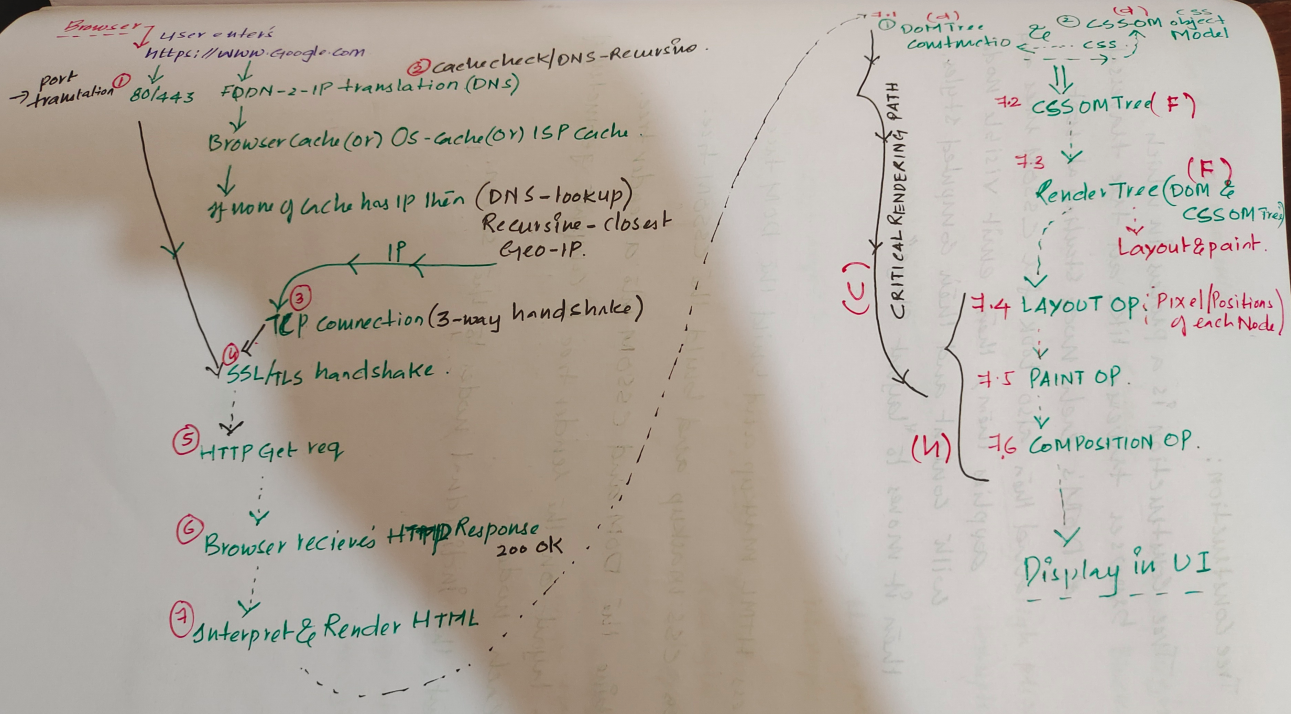 Browser
User enters
https://www.Google.com
→ port translation ① 80/443
② Cache check/DNS-Recursive.
FQDN-2-IP translation (DNS)
Browser Cache (or) OS-Cache (or) ISP Cache.
If none of Cache has IP then (DNS-lookup)
Recursive-closest
Geo-IP.
IP
③
TCP connection (3-way handshake)
④
SSL/TLS handshake.
⑤ HTTP Get req
⑥ Browser recieves HTTP Response
200 OK
⑦ Interpret & Render HTML
7.1
① (d) DOM Tree
Constructio
&
② (d) CSSOM CSS object
Model
CSS
7.2 CSSOM Tree (F)
7.3
(F)
Render Tree (DOM &
CSSOM Tree)
Layout & paint.
CRITICAL RENDERING PATH
(C)
7.4 LAYOUT OP: (Pixel/Positions
of each Node)
7.5 PAINT OP.
(N)
7.6 COMPOSITION OP.
Display in UI